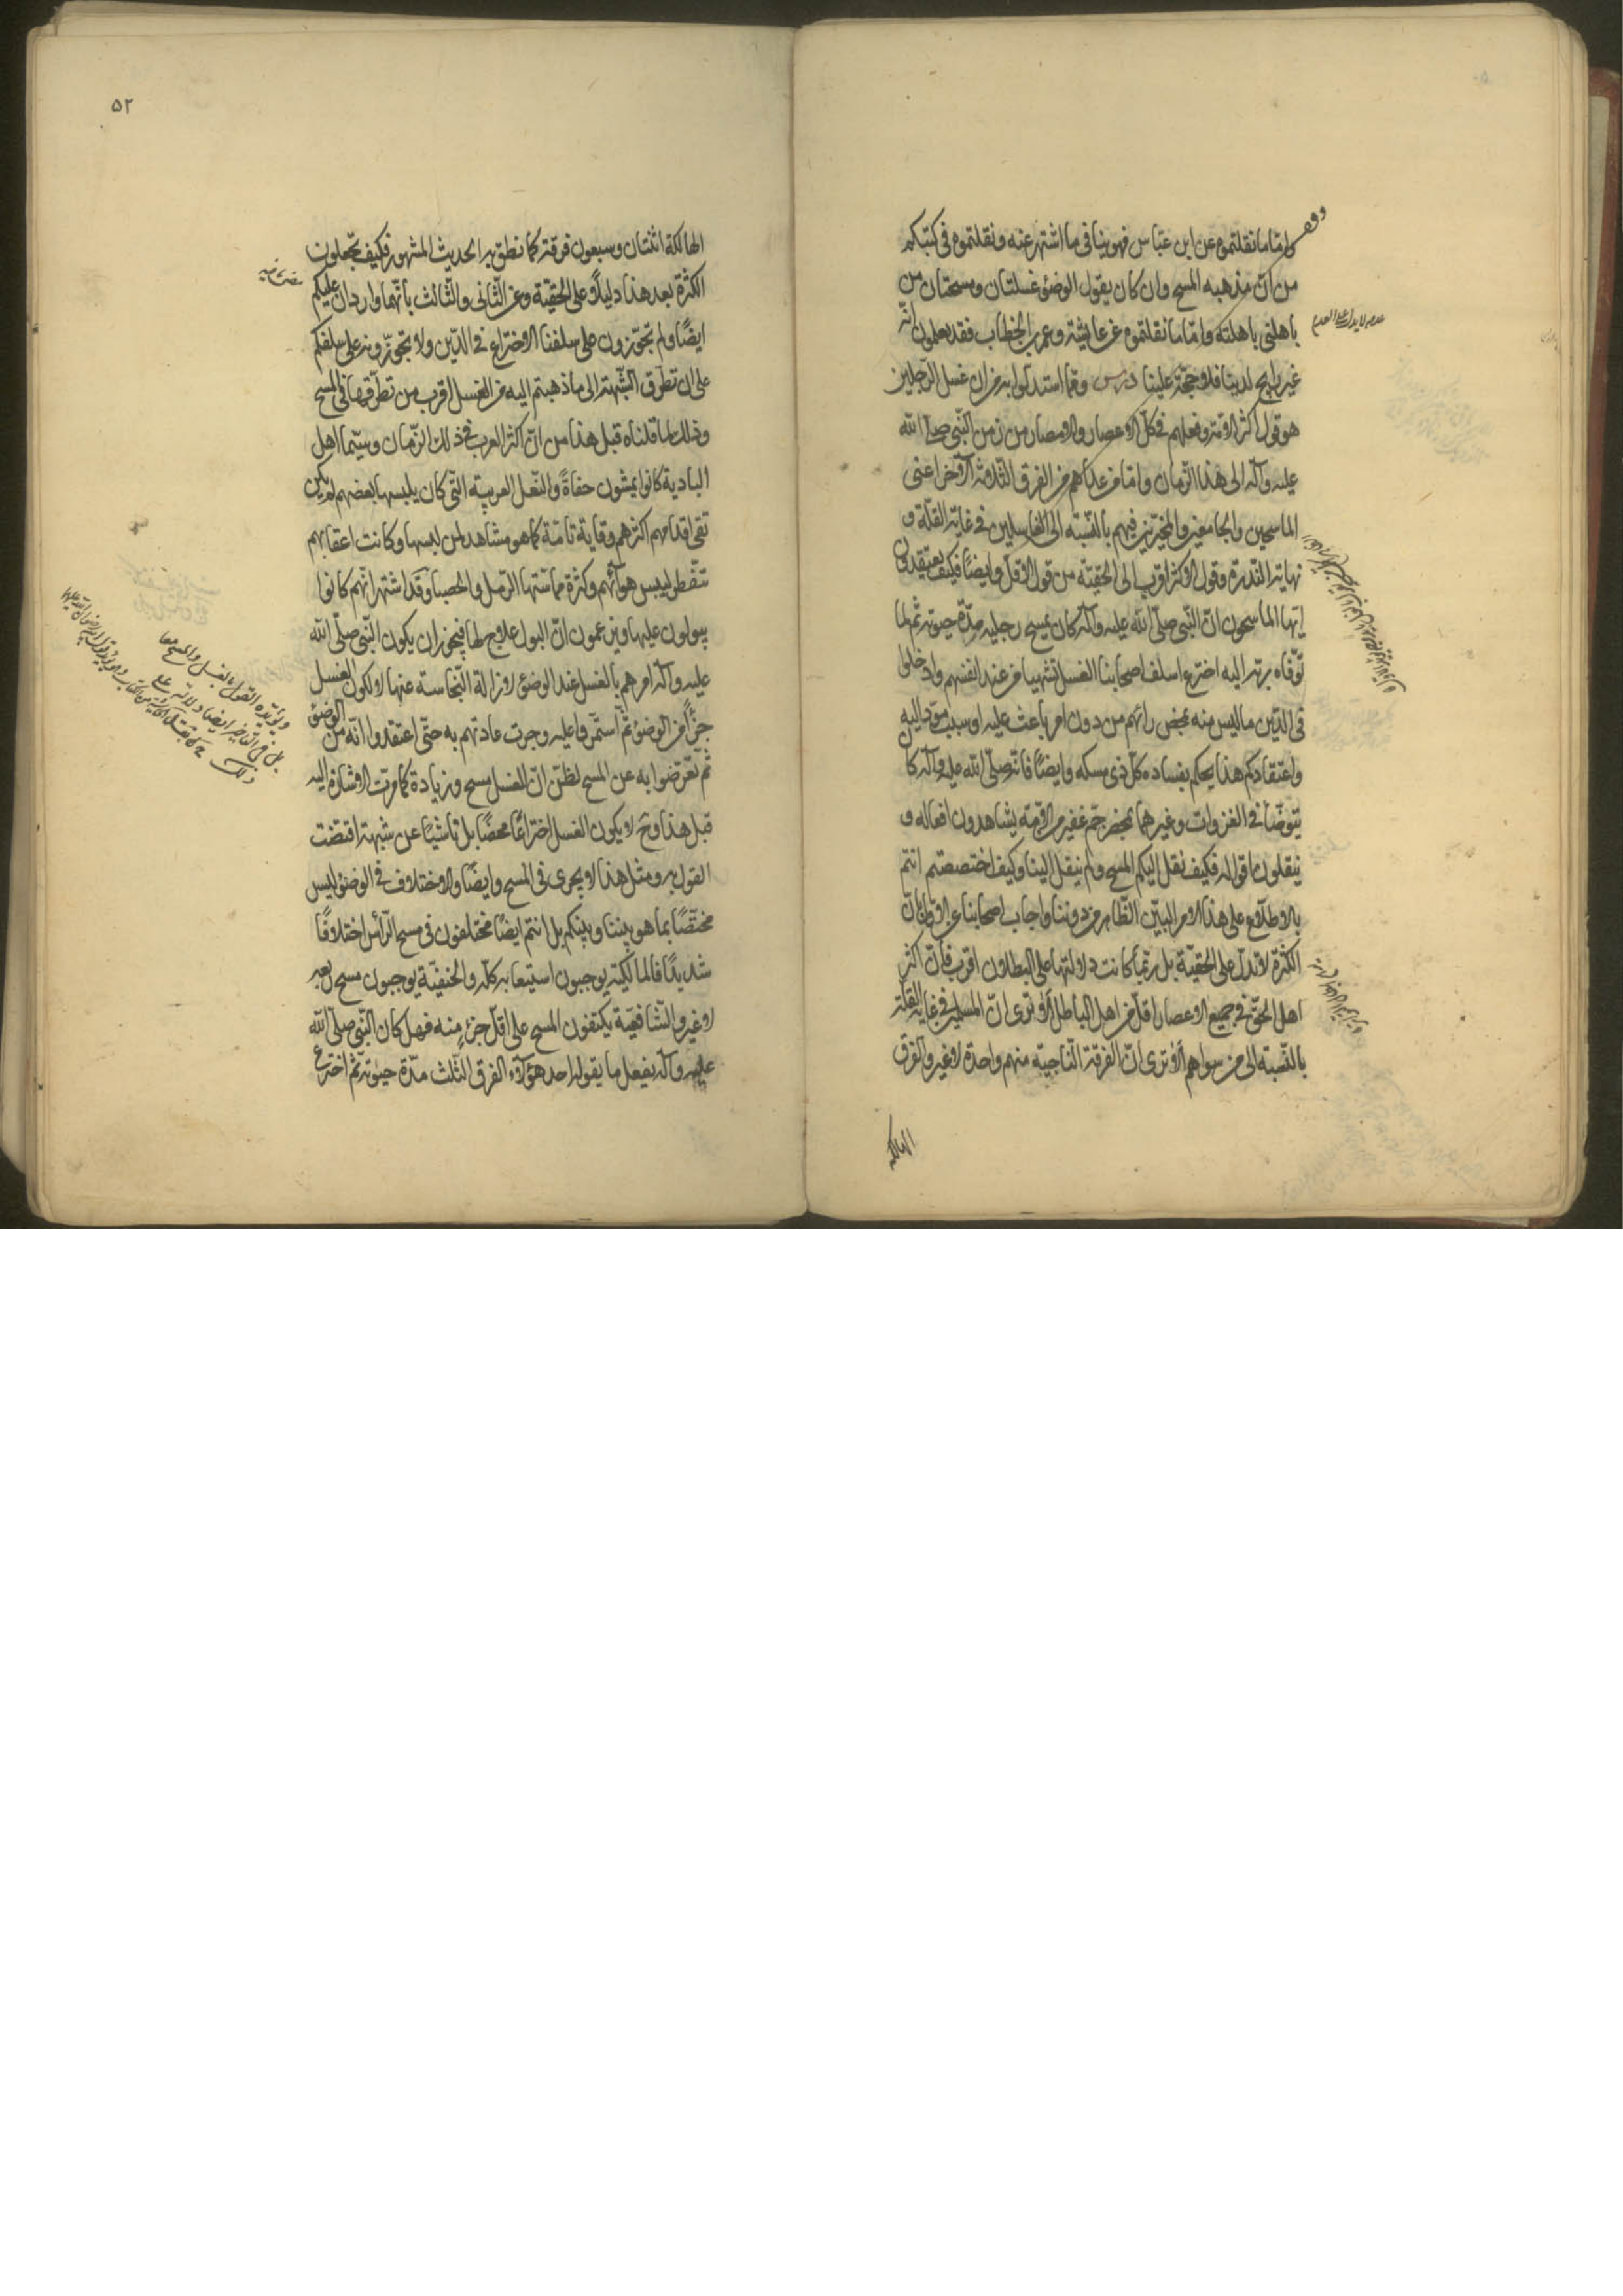 وامّا ما نقلتموه عن ابن عبّاس فهو ينافى ما اشتهر عنه ونقلتموه فى كتبكم
من انّ مذهبه المسح وان كان يقول الوضوء غسلتان ومسحتان من
باهلنى باهلته وامّا ما نقلتموه عن عايشة وعمر بن الخطاب فقد تعلمون انّه
غير رايج لدينا فلا حجّة علينا درس وممّا استدلّوا به من ان غسل الرّجلين
هو قول اكثر الامّة وفعلهم فى كلّ الاعصار والامصار من زمن النّبى صلّى الله
عليه وآله الى هذا الزّمان وامّا من عداهم من الفرق الثّلاثة الاخر اعنى
الماسحين والجامعين والمخيّرين فهم بالنّسبة الى الغاسلين فى غاية القلّة و
نهاية النّدرة وقول الاكثر اقرب الى الحقيّة من قول الاقلّ وايضًا فكيف تعتقدون
ايّها الماسحون انّ النّبى صلّى الله عليه وآله كان يمسح رجليه مدّة حيوته ثمّ لمّا
توّفاه ربّه اليه اخترع اسلف اصحابنا الغسل تشهيا من عند انفسهم وادخلوا
فى الدّين ما ليس منه بمحض رأيهم من دون امر باعث عليه او سبب مؤد اليه
واعتقادكم هذا يحكم بفساده كلّ ذى مسكه وايضًا فانّه صلّى الله عليه وآله كا
يتوضّأ فى الغزوات وغيرها بمحضر جمّ غفير من الامّة يشاهدون افعاله و
ينقلون اقواله فكيف نقل اليكم المسح ولم ينقل الينا وكيف اختصصتم انتم
بالاطلاع على هذا الامر البيّن الظّاهر من دوننا واجاب اصحابنا عن الاوّل بانّ
الكثرة لا تدلّ على الحقيّة بل ربّما كانت دلالتها على البطلان اقرب فانّ اكثر
اهل الحقّ فى جميع الاعصار اقلّ من اهل الباطل ألا ترى انّ المسلمين فى غاية القلّة
بالنّسبة الى من سواهم ألا ترى انّ الفرقة النّاجية منهم واحدة لا غير والفرق
الهالكه
٥٢
الهالكة اثنتان وسبعون فرقة كما نطق به الحديث المشهور فكيف تجعلون
الكثرة بعد هذا دليلًا على الحقيّة وعن الثّانى والثّالث بانّهما واردان عليكم
ايضًا ولم تجوّزون على سلفنا الاختراع فى الدّين ولا تجوّزونه على سلفكم
على ان تطرّق الشّبهة الى ما ذهبتم اليه من الغسل اقرب من تطرّقها فى المسح
وذلك لما قلناه قبل هذا من انّ اكثر العرب فى ذلك الزّمان وسيّما اهل
البادية كانوا يمشون حفاةً والنّعل العربيّة الّتى كان يلبسها بعضهم لم يكن
تقى اقدامهم اكثرهم وقاية تامّة كما هو مشاهد لمن لبسها وكانت اعقابهم
تتفطر ليبس هوائهم وكثرة مماسّتها الرّمل والحصبا وقد اشتهر انّهم كانوا
يبولون عليها ويزعمون انّ البول علاج لها فيجوز ان يكون النّبى صلّى الله
عليه وآله امرهم بالغسل عند الوضوء لازالة النّجاسة عنها لا لكون الغسل
جزءًا من الوضوء ثمّ استمرّوا عليه وجرت عادتهم به حتّى اعتقدوا انّه من الوضوء
ثمّ تعرّضوا به عن المسح لظنّ انّ الغسل مسح وزيادة كما مرّت الاشارة اليه
قبل هذا وح لا يكون الغسل اختراعًا محضًا بل ناشيًا عن شبهة اقتضت
القول به ومثل هذا لا يجرى فى المسح وايضًا والاختلاف فى الوضوء ليس
مختصًّا بما هو بيننا وبينكم بل انتم ايضًا مختلفون فى مسح الرّأس اختلافًا
شديدًا فالمالكيّة يوجبون استيعابه كلّه والحنفيّة يوجبون مسح ربعه
لا غير والشّافعيّة يكتفون المسح على اقلّ جزء منه فهل كان النّبى صلّى الله
عليه وآله يفعل ما يقوله احد هؤلاء الفرق الثّلث مدّة حيوته ثمّ اخترع
ويؤيّده القول بالغسل والمسح معا